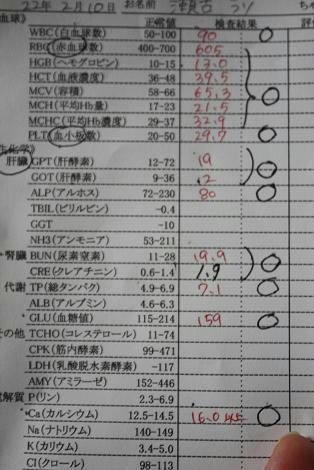 22年 2月10日 お名前
血球》 正常値 検査結果
WBC(白血球数) 50-100 90
RBC(赤血球数) 400-700 605
HGB(ヘモグロビン) 10-15 13.0
HCT(血液濃度) 36-48 39.5
MCV(容積) 58-66 65.3
MCH(平均Hb量) 17-23 21.5
MCHC(平均Hb濃度) 29-37 32.9
PLT(血小板数) 20-50 29.7
化学》
肝臓 GPT(肝酵素) 12-72 19
GOT(肝酵素) 9-36
ALP(アルホス) 72-230 80
TBIL(ビリルビン) -0.4
GGT -10
NH3(アンモニア) 53-211
腎臓 BUN(尿素窒素) 11-28 19.9
CRE(クレアチニン) 0.6-1.4 1.9
代謝 TP(総タンパク) 4.9-6.9 7.1
ALB(アルブミン) 4.6-6.3
GLU(血糖値) 115-214 159
その他 TCHO(コレステロール) 11-74
CPK(筋内酵素) 99-471
LDH(乳酸脱水素酵素) -117
AMY(アミラーゼ) 152-446
電解質 P(リン) 2.3-6.9
Ca(カルシウム) 12.5-14.5 16.0
Na(ナトリウム) 140-149
K(カリウム) 3.4-5.0
Cl(クロール) 98-113